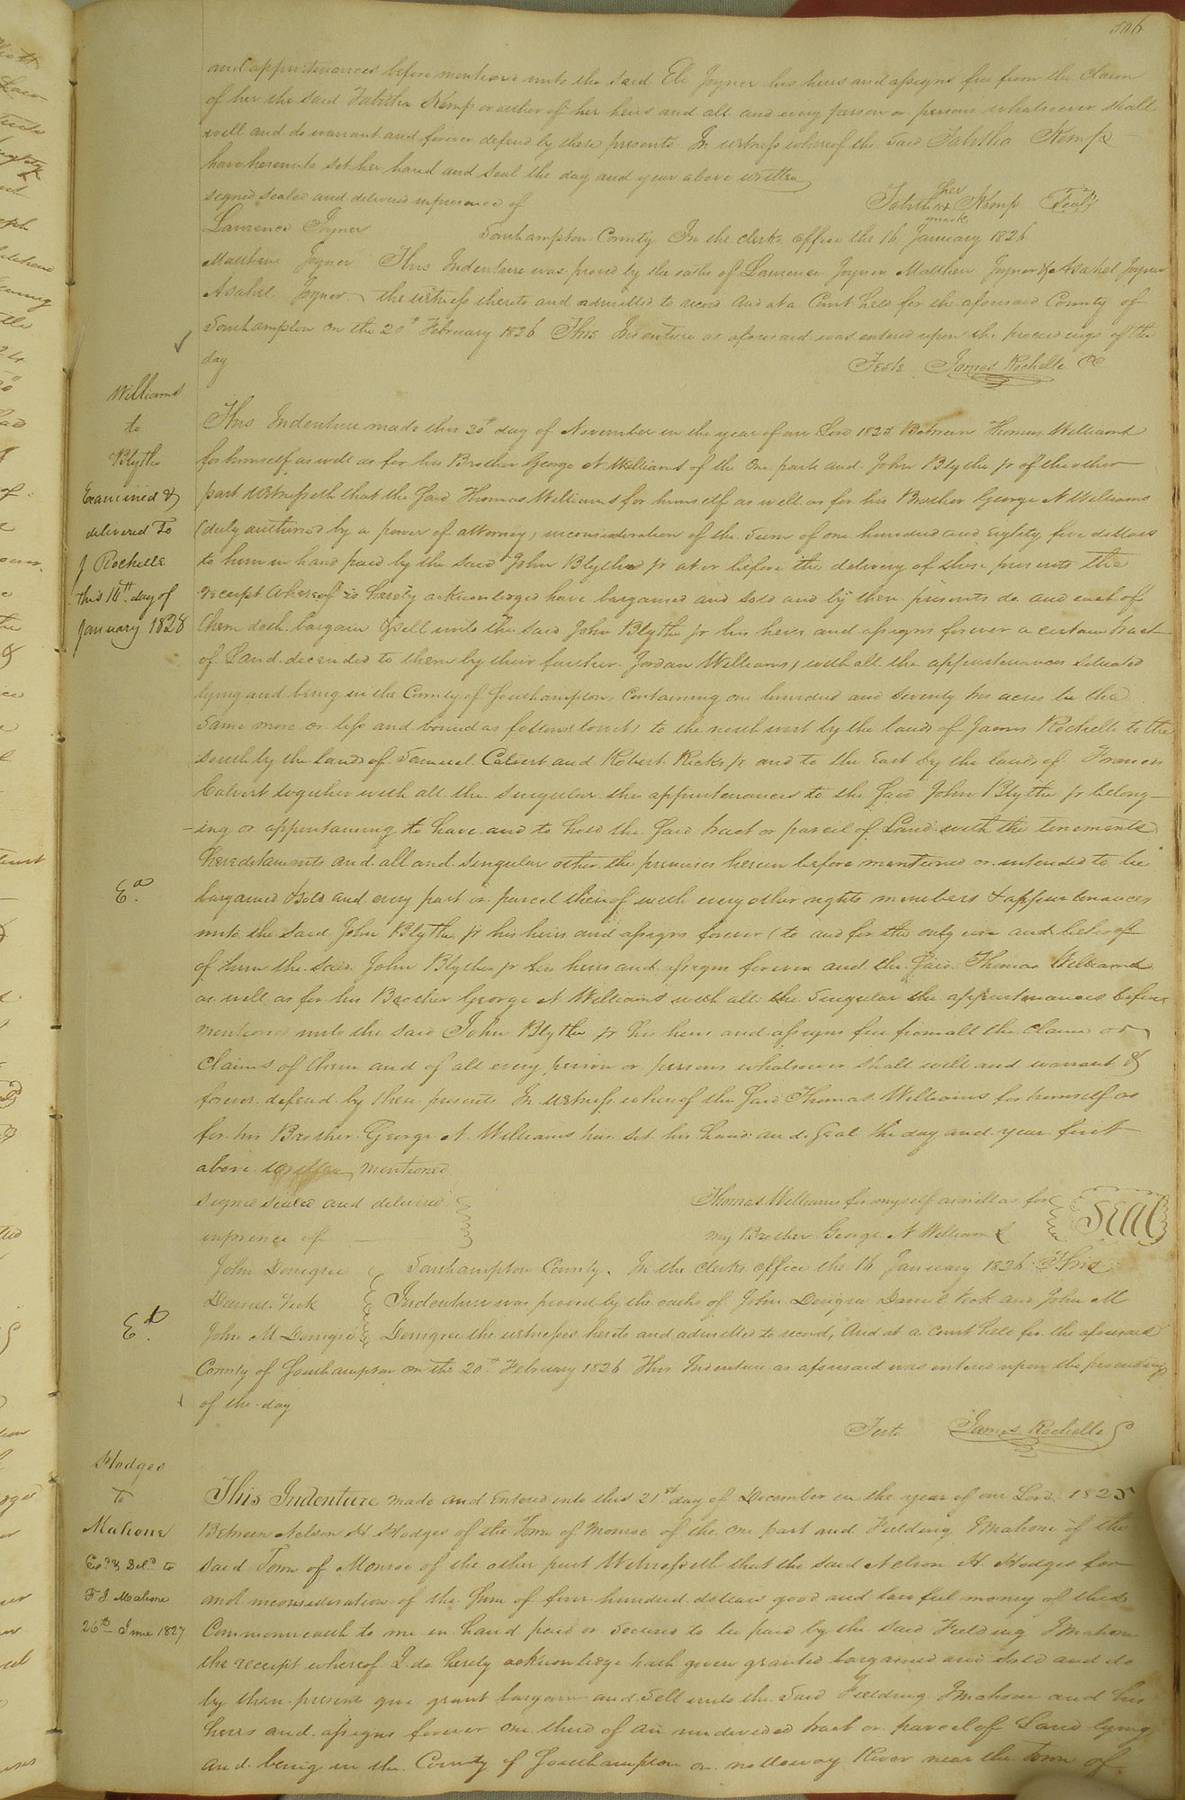 506
and appurtenances before mentioned unto the said Eli Joyner his heirs and assigns free from the claim
of her the said Tabitha Kemp or either of her heirs and all and every person or persons whatsoever shall
well and do warrant and forever defend by these presents In witness whereof the said Tabitha Kemp
have hereunto set her hand and seal the day and year above written
signed sealed and delivered in presence of
her
Tabitha x Kemp Seal
mark
Lawrence Joyner Southampton County In the clerks office the 16 January 1826
Matthew Joyner This Indenture was proved by the oaths of Lawrence Joyner Matthew Joyner & Asahel Joyner
Asahel Joyner the witness thereto and admitted to record And at a Court held for the aforesaid County of
Southampton on the 20th February 1826 This Indenture as aforesaid was entered upon the proceedings of the
day
Teste James Rochelle CC
Williams
to
Blythe
Examined &
delivered To
J Rochelle
this 16th day of
January 1828
This Indenture made this 30th day of November in the year of our Lord 1825 Between Thomas Williams
for himself as well as for his Brother George N Williams of the one part and John Blythe jr of the other
part Witnesseth that the said Thomas Williams for himself as well as for his Brother George N Williams
(duly authorised by a power of attorney) in consideration of the sum of one hundred and eighty five dollars
to him in hand paid by the said John Blythe jr at or before the delivery of these presents the
receipt whereof is hereby acknowledged have bargained and sold and by these presents do and each of
them doth bargain & sell unto the said John Blythe jr his heirs and assigns forever a certain tract
of Land decended to them by their father Jordan Williams, with all the appurtenances situated
lying and being in the County of Southampton, containing one hundred and seventy acres be the
same more or less and bound as follows (towit) to the north west by the lands of James Rochelle to the
south by the lands of Samuel Calvert and Robert Ricks jr and to the East by the lands of Francis
Calvert together with all the singular the appurtenances to the said John Blythe jr belong-
-ing or appertaining to have and to hold the said tract or parcel of Land with the tenements
hereditaments and all and singular other the premises herein before mentioned or intended to be
Exd.
bargained & sold and every part or parcel thereof with every other rights members & appurtenances
unto the said John Blythe jr his heirs and assigns forever (to and for the only use and behoof
of him the said John Blythe jr his heirs and assigns forever and the said Thomas Williams
as well as for his Brother George N Williams with all the singular the appurtenances before
mentioned unto the said John Blythe jr his heirs and assigns free from all the claim or
claims of them and of all every person or persons whatsoever shall well and warrant &
forever defend by these presents In witness whereof the said Thomas Williams for himself as
for his Brother George N Williams has set his hand and seal the day and year first
above mentioned
signed sealed and delivered
in presence of
Thomas Williams for myself as well as for
my Brother George N Williams
Seal
John Denegree Southampton County. In the clerks office the 16 January 1826 This
Daniel Vick Indenture was proved by the oaths of John Denegree Daniel Vick and John M
Exd.
John M Denegree Denegree the witnesses hereto and admitted to record, And at a court held for the aforesaid
County of Southampton on the 20th February 1826 This Indenture as aforesaid was entered upon the proceedings
of the day
Teste James Rochelle C
Hodges
To
Mahone
Exd & Deld to
F J Mahone
26th June 1827
This Indenture made and entered into this 21st day of December in the year of our Lord 1825
Between Nelson H Hodges of the Town of Monroe of the one part and Fielding J Mahone of the
said Town of Monroe of the other part Witnesseth that the said Nelson H Hodges for
and in consideration of the sum of four hundred dollars good and lawful money of this
Commonwealth to me in hand paid or secured to be paid by the said Fielding J Mahone
the receipt whereof I do hereby acknowledge hath given granted bargained and sold and do
by these present give grant bargain and sell unto the said Fielding J Mahone and his
heirs and assigns forever one third of an undivided tract or parcel of Land lying
and being in the County of Southampton on nottoway River near the Town of